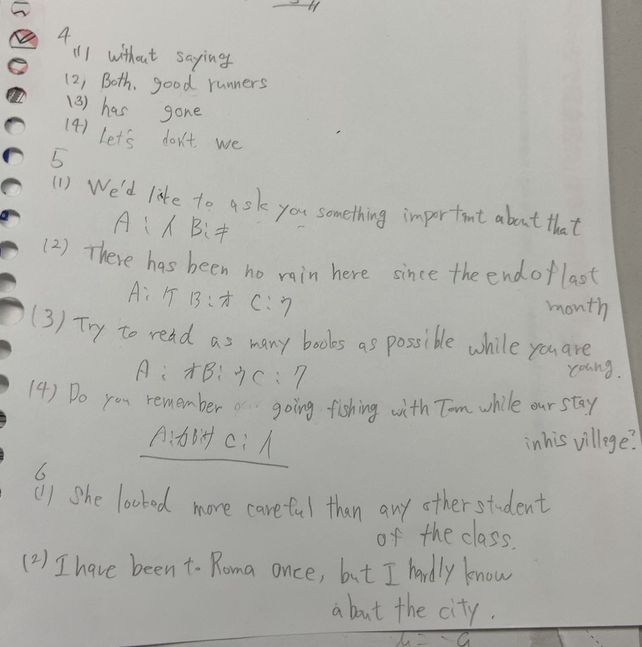 4
(1) without saying
(2) Both. good runners
(3) has gone
(4) Let's don't we
5
(1) We'd like to ask you something important about that
A: イ B: キ
(2) There has been no rain here since the end of last
month
A: ケ B: オ C: ウ
(3) Try to read as many books as possible while you are
young.
A: オ B: ウ C: ク
(4) Do you remember going fishing with Tom while our stay
in his villege?
A: カ B: サ C: イ
6
(1) She looked more careful than any other student
of the class.
(2) I have been to Roma once, but I hardly know
about the city.